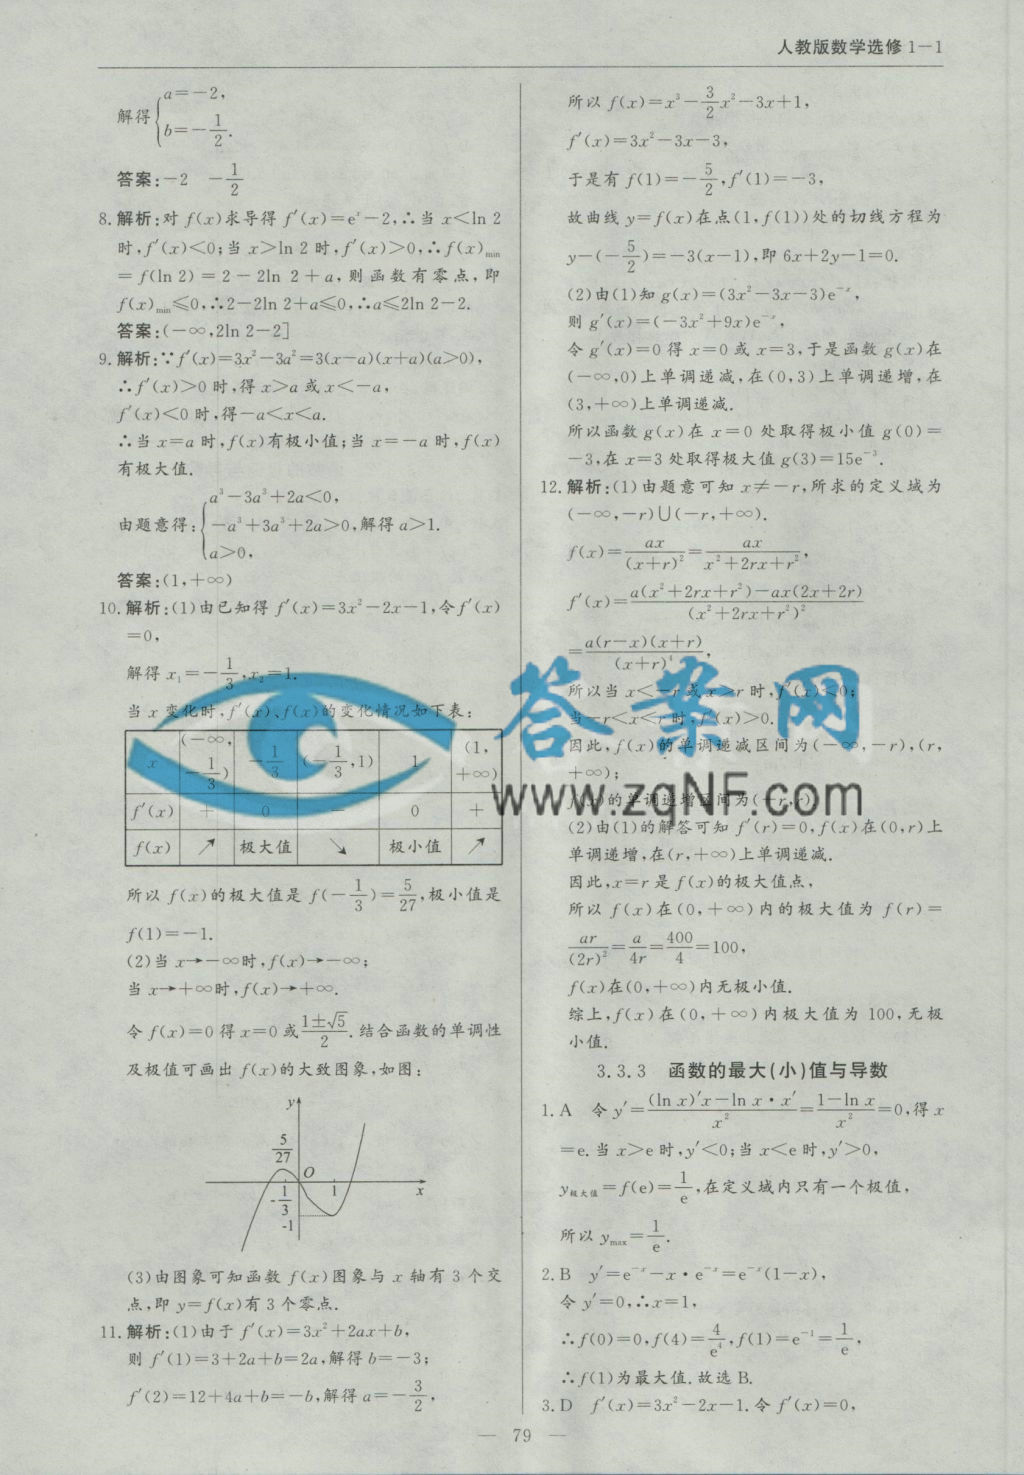 人教版数学选修1－1
解得{a＝－2，
b＝－1/2.
答案:－2　－1/2
8. 解析:对 f(x)求导得 f′(x)＝eˣ－2,∴当 x＜ln 2
时,f′(x)＜0;当 x＞ln 2 时,f′(x)＞0,∴f(x)min
＝f(ln 2)＝2－2ln 2＋a,则函数有零点,即
f(x)min≤0,∴2－2ln 2＋a≤0,∴a≤2ln 2－2.
答案:(－∞,2ln 2－2]
9. 解析:∵f′(x)＝3x²－3a²＝3(x－a)(x＋a)(a＞0),
∴f′(x)＞0 时,得 x＞a 或 x＜－a,
f′(x)＜0 时,得－a＜x＜a.
∴当 x＝a 时,f(x)有极小值;当 x＝－a 时,f(x)
有极大值.
由题意得:{a³－3a³＋2a＜0,
－a³＋3a³＋2a＞0,解得 a＞1.
a＞0,
答案:(1,＋∞)
10. 解析:(1)由已知得 f′(x)＝3x²－2x－1,令 f′(x)
＝0,
解得 x₁＝－1/3,x₂＝1.
当 x 变化时,f′(x)、f(x)的变化情况如下表:
x (－∞,－1/3) －1/3 (－1/3,1) 1 (1,＋∞)
f′(x) ＋ 0 － 0 ＋
f(x) ↗ 极大值 ↘ 极小值 ↗
所以 f(x)的极大值是 f(－1/3)＝5/27,极小值是
f(1)＝－1.
(2)当 x→－∞时,f(x)→－∞;
当 x→＋∞时,f(x)→＋∞.
令 f(x)＝0 得 x＝0 或(1±√5)/2.结合函数的单调性
及极值可画出 f(x)的大致图象,如图:
y
5/27
O
-1/3
1
x
-1
(3)由图象可知函数 f(x)图象与 x 轴有 3 个交
点,即 y＝f(x)有 3 个零点.
11. 解析:(1)由于 f′(x)＝3x²＋2ax＋b,
则 f′(1)＝3＋2a＋b＝2a,解得 b＝－3;
f′(2)＝12＋4a＋b＝－b,解得 a＝－3/2,
所以 f(x)＝x³－3/2x²－3x＋1,
f′(x)＝3x²－3x－3,
于是有 f(1)＝－5/2,f′(1)＝－3,
故曲线 y＝f(x)在点(1,f(1))处的切线方程为
y－(－5/2)＝－3(x－1),即 6x＋2y－1＝0.
(2)由(1)知 g(x)＝(3x²－3x－3)e⁻ˣ,
则 g′(x)＝(－3x²＋9x)e⁻ˣ,
令 g′(x)＝0 得 x＝0 或 x＝3,于是函数 g(x)在
(－∞,0)上单调递减,在(0,3)上单调递增,在
(3,＋∞)上单调递减.
所以函数 g(x)在 x＝0 处取得极小值 g(0)＝
－3,在 x＝3 处取得极大值 g(3)＝15e⁻³.
12. 解析:(1)由题意可知 x≠－r,所求的定义域为
(－∞,－r)∪(－r,＋∞).
f(x)＝ax/(x＋r)²＝ax/(x²＋2rx＋r²),
f′(x)＝[a(x²＋2rx＋r²)－ax(2x＋2r)]/(x²＋2rx＋r²)²
＝a(r－x)(x＋r)/(x＋r)⁴,
所以当 x＜－r 或 x＞r 时,f′(x)＜0;
当－r＜x＜r 时,f′(x)＞0.
因此,f(x)的单调递减区间为(－∞,－r),(r,
＋∞);
f(x)的单调递增区间为(－r,r).
(2)由(1)的解答可知 f′(r)＝0,f(x)在(0,r)上
单调递增,在(r,＋∞)上单调递减.
因此,x＝r 是 f(x)的极大值点,
所以 f(x)在(0,＋∞)内的极大值为 f(r)＝
ar/(2r)²＝a/4r＝400/4＝100,
f(x)在(0,＋∞)内无极小值.
综上,f(x)在(0,＋∞)内极大值为 100,无极
小值.
3.3.3　函数的最大(小)值与导数
1. A　令 y′＝[(ln x)′x－ln x·x′]/x²＝(1－ln x)/x²＝0,得 x
＝e.当 x＞e 时,y′＜0;当 x＜e 时,y′＞0,
y极大值＝f(e)＝1/e,在定义域内只有一个极值,
所以 ymax＝1/e.
2. B　y′＝e⁻ˣ－x·e⁻ˣ＝e⁻ˣ(1－x),
令 y′＝0,∴x＝1,
∴f(0)＝0,f(4)＝4/e⁴,f(1)＝e⁻¹＝1/e,
∴f(1)为最大值.故选 B.
3. D　f′(x)＝3x²－2x－1.令 f′(x)＝0,
答案网
www.zqNF.com
— 79 —